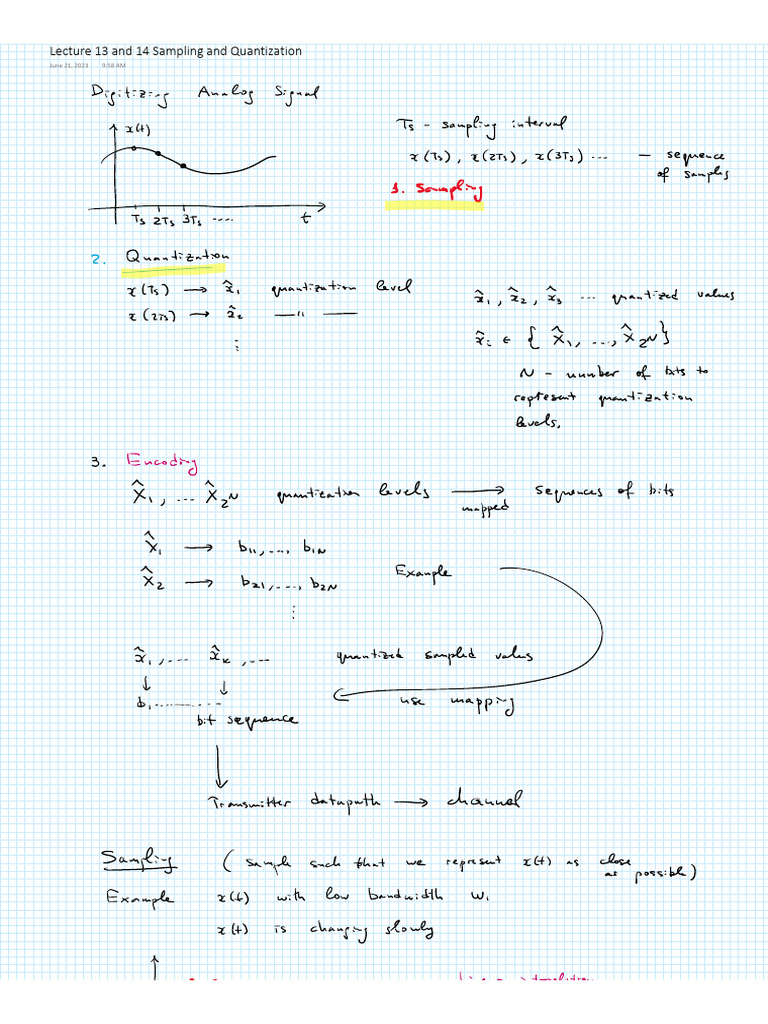 Lecture 13 and 14 Sampling and Quantization
June 21, 2023 9:58 AM
Digitizing Analog Signal
x(t)
Ts 2Ts 3Ts ....
t
Ts - sampling interval
x(Ts), x(2Ts), x(3Ts) ... — sequence of samples
1. Sampling
2. Quantization
x(Ts) → x̂₁ quantization level
x(2Ts) → x̂₂ —— ıı ——
⋮
x̂₁, x̂₂, x̂₃ ... quantized values
x̂ᵢ ∈ { X̂₁, ..., X̂_2^N }
N - number of bits to
represent quantization
levels.
3. Encoding
X̂₁, ... X̂_2^N quantization levels → sequences of bits
mapped
X̂₁ → b₁₁, ..., b_1N
X̂₂ → b₂₁, ..., b_2N
⋮
Example
x̂₁, ... x̂_k, ... quantized sampled values
↓ ↓
b₁ ..........
use mapping
bit sequence
Transmitter datapath → channel
Sampling ( sample such that we represent x(t) as close
as possible)
Example x(t) with low bandwidth W₁
x(t) is changing slowly